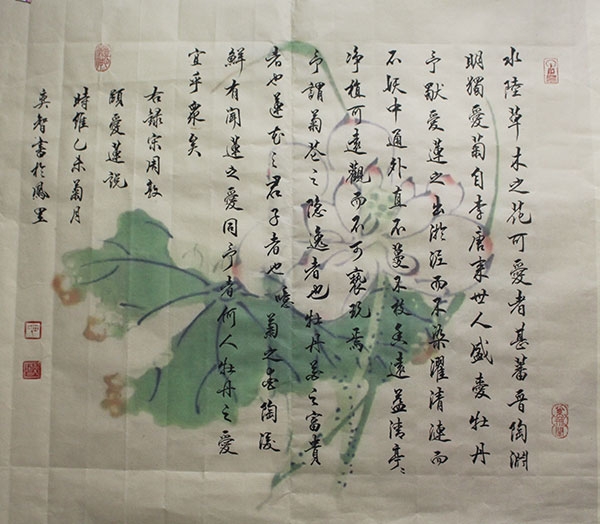 水陸草木之花可愛者甚蕃晉陶淵
明獨愛菊自李唐来世人盛愛牡丹
予獨愛蓮之出淤泥而不染濯清漣而
不妖中通外直不蔓不枝香遠益清亭〻
净植可遠觀而不可褻玩焉
予謂菊花之隐逸者也牡丹花之富貴
者也蓮花之君子者也噫菊之愛陶後
鮮有聞蓮之愛同予者何人牡丹之愛
宜乎衆矣
右録宋周敦
頤愛蓮説
時維乙未菊月
奕智書於鳳里